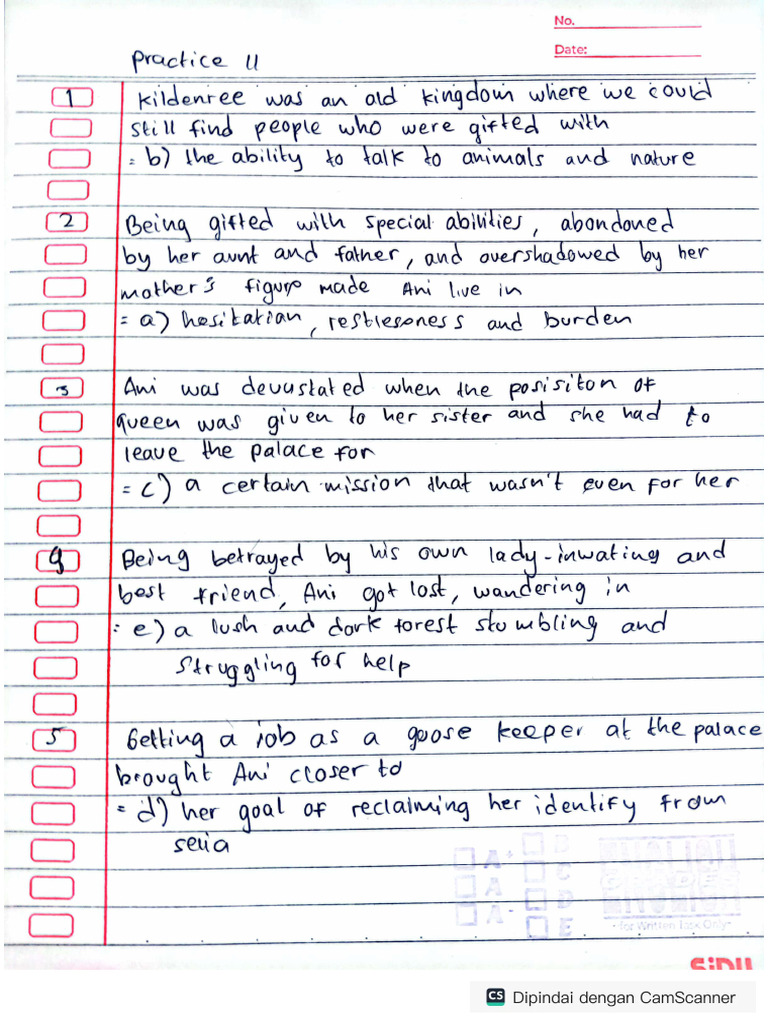 No.
Date:
Practice 11
1 Kildenree was an old kingdom where we could
still find people who were gifted with
= b) the ability to talk to animals and nature
2 Being gifted with special abilities, abondoned
by her aunt and father, and overshadowed by her
mother's figure made Ani live in
= a) hesitation, restlessness and burden
3 Ani was devastated when the posisiton of
queen was given to her sister and she had to
leave the palace for
= c) a certain mission that wasn't even for her
4 Being betrayed by his own lady-inwating and
best friend, Ani got lost, wandering in
= e) a lush and dark forest stumbling and
struggling for help
5 Getting a job as a goose keeper at the palace
brought Ani closer to
= d) her goal of reclaiming her identify from
selia
A+ B
A C
A- D
E
SiDU
CS Dipindai dengan CamScanner